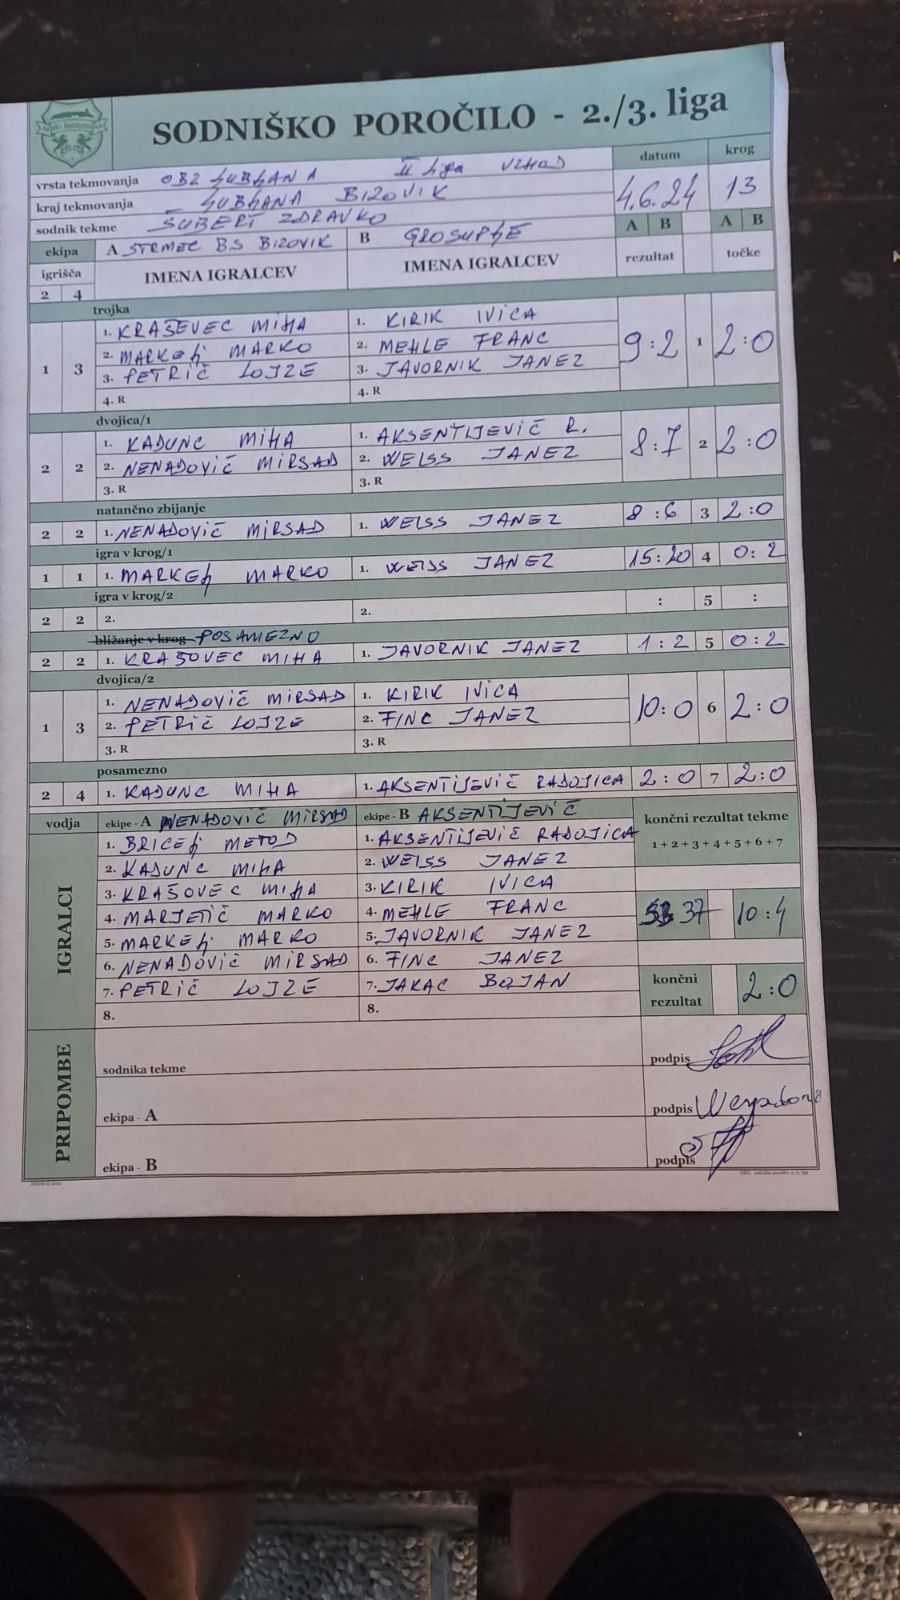 SODNIŠKO POROČILO - 2./3. liga
vrsta tekmovanja OBZ LJUBLJANA II liga VZHOD
datum krog
kraj tekmovanja LJUBLJANA BIZOVIK
4.6.24 13
sodnik tekme SUBERT ZDRAVKO
A B A B
ekipa A STRMEC BŠ BIZOVIK B GROSUPLJE
rezultat točke
igrišča IMENA IGRALCEV IMENA IGRALCEV
2 4
trojka
1 3 1. KRAŠEVEC MIHA 1. KIRIK IVICA 9:2 1 2:0
2. MARKELJ MARKO 2. MEHLE FRANC
3. PETRIČ LOJZE 3. JAVORNIK JANEZ
4. R 4. R
dvojica/1
2 2 1. KADUNC MIHA 1. AKSENTIJEVIČ R. 8:7 2 2:0
2. NENADOVIČ MIRSAD 2. WEISS JANEZ
3. R 3. R
natančno zbijanje
2 2 1. NENADOVIČ MIRSAD 1. WEISS JANEZ 8:6 3 2:0
igra v krog/1
1 1 1. MARKELJ MARKO 1. WEISS JANEZ 15:20 4 0:2
igra v krog/2
2 2 2. 2. : 5 :
bližanje v krog POSAMEZNO
2 2 1. KRAŠOVEC MIHA 1. JAVORNIK JANEZ 1:2 5 0:2
dvojica/2
1 3 1. NENADOVIČ MIRSAD 1. KIRIK IVICA 10:0 6 2:0
2. PETRIČ LOJZE 2. FINC JANEZ
3. R 3. R
posamezno
2 4 1. KADUNC MIHA 1. AKSENTIJEVIČ RADOJICA 2:0 7 2:0
vodja ekipe - A NENADOVIČ MIRSAD ekipe - B AKSENTIJEVIČ
končni rezultat tekme
1 + 2 + 3 + 4 + 5 + 6 + 7
IGRALCI
1. BRICELJ METOD 1. AKSENTIJEVIČ RADOJICA
2. KADUNC MIHA 2. WEISS JANEZ
3. KRAŠOVEC MIHA 3. KIRIK IVICA
4. MARJETIČ MARKO 4. MEHLE FRANC
37 10:4
5. MARKELJ MARKO 5. JAVORNIK JANEZ
6. NENADOVIČ MIRSAD 6. FINC JANEZ
7. PETRIČ LOJZE 7. JAKAC BOJAN
končni rezultat 2:0
8. 8.
PRIPOMBE
sodnika tekme podpis
ekipa - A podpis
ekipa - B podpis